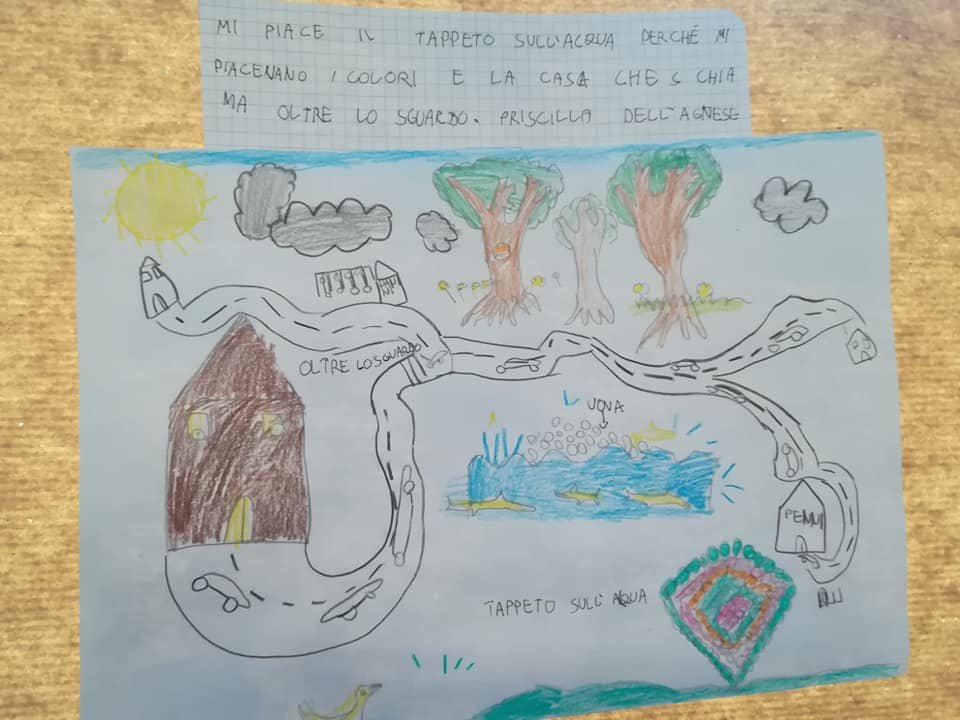 MI PIACE IL TAPPETO SULL'ACQUA PERCHÉ MI
PIACENANO I COLORI E LA CASA CHE S CHIA
MA OLTRE LO SGUARDO. PRISCILLA DELL'AGNESE
OLTRE LO SGUARDO
UOVA
PENNI
TAPPETO SULL'AQUA